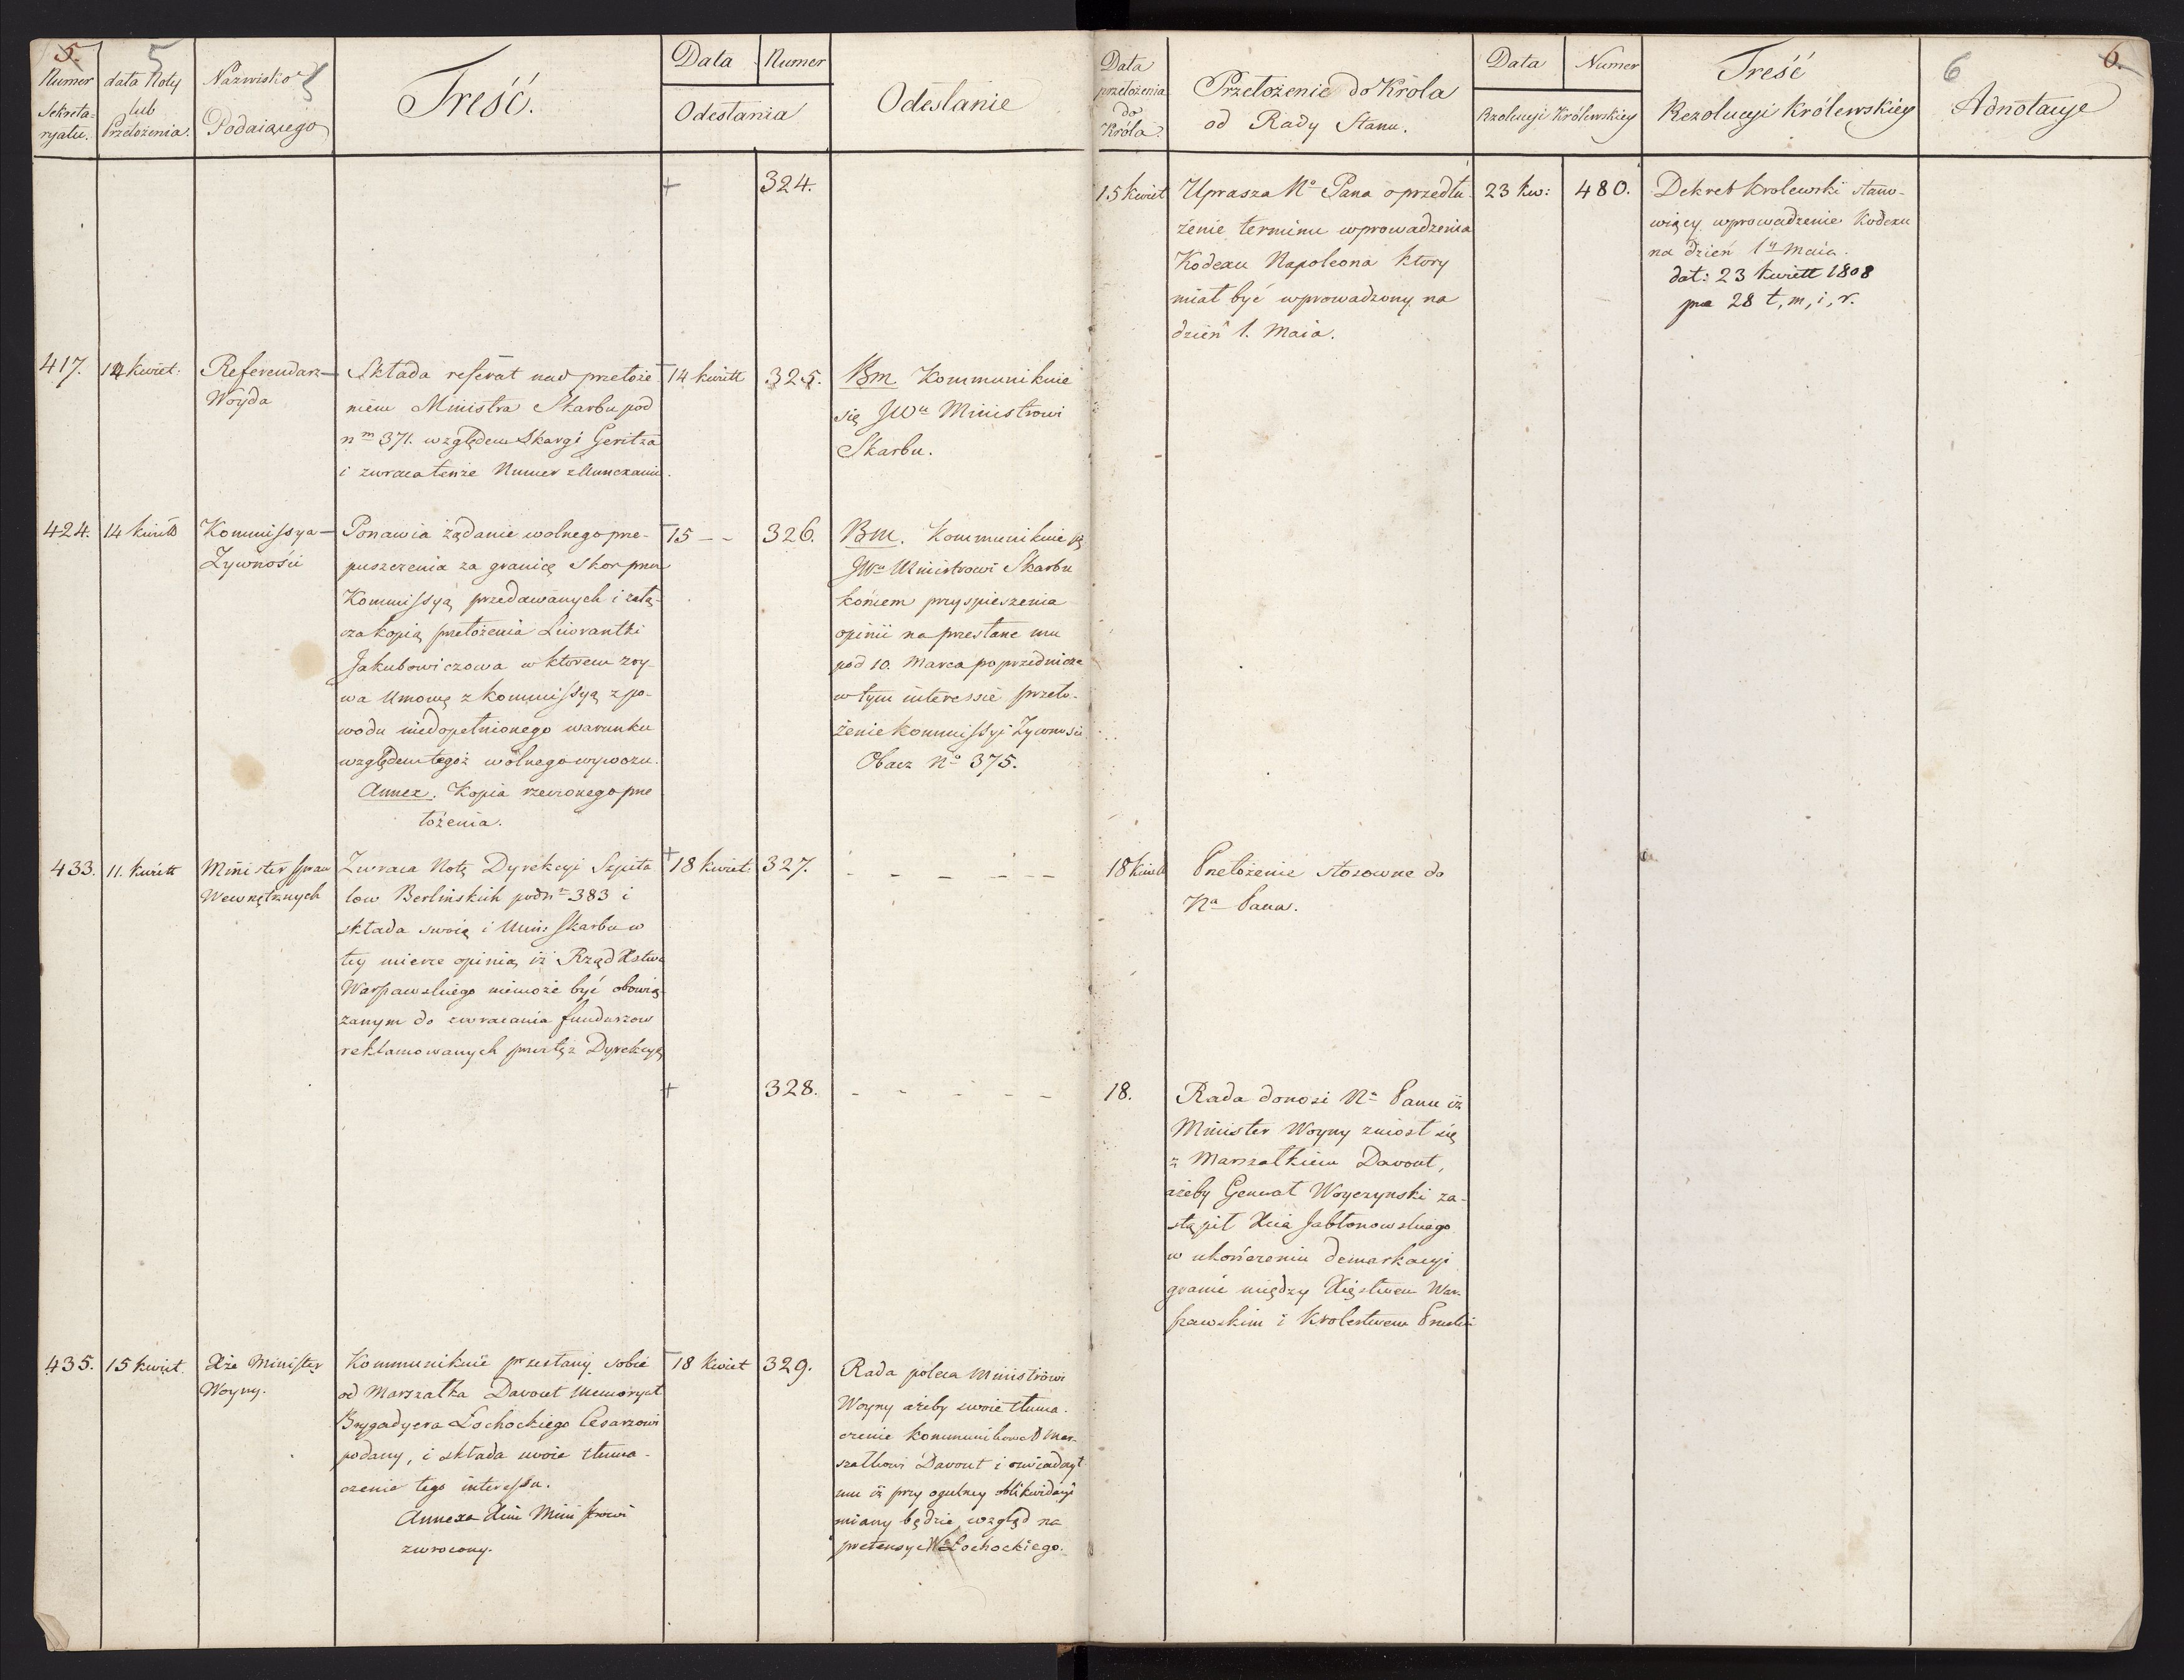 5.
5
Numer
Sekreta-
ryatu.
data Noty
lub
Przełożenia.
Nazwisko
Podaiącego
Treść.
Data
Numer
Odesłania
Odesłanie
Data
przełożenia
do
Króla
Przełożenie do Króla
od Rady Stanu.
Data
Numer
Rezolucyi Królewskiey
Treść
Rezolucyi Królewskiey
6
6.
Adnotacye
+ 324.
15 kwiet
Uprasza No Pana o przedłu-
żenie terminu wprowadzenia
Kodexu Napoleona ktory
miał być wprowadzony na
dzień 1. Maia.
23 kw:
480.
Dekret krolewski stano-
wiący wprowadzenie Kodexu
na dzień 1y Maia.
dat: 23 kwiett 1808
pra 28 t, m, i, r.
417.
14 kwiet:
Referendarz
Woyda
Składa referat nad przełoże
niem Ministra Skarbu pod
nm 371. względem Skargi Geritza
i zwraca tenże Numer
14 kwiett
325.
Bm Kommunikuie
się JWu Ministrowi
Skarbu.
424.
14 kwiett
Kommissya
Zywności
Ponawia żądanie wolnego prze-
puszczenia za granicę Skor przez
Kommissyą przedawanych i załą-
cza kopią przełożenia Liwrantki
Jakubowiczowa w ktorem zry-
wa Umowę z kommissyą z po-
wodu niedopełnionego warunku
względem tegoż wolnego wywozu.
Annex. Kopia rzeczonego prze
łożenia.
15 - -
326.
BM. Kommunikuie się
JWu Ministrowi Skarbu
końcem przyspieszenia
opinii na przesłane mu
pod 10. Marca poprzednicze
w tym interessie przeło-
żenie kommissyi Zywności
Obacz No 375.
433.
11. kwiett
Minister Spraw
Wewnętrznych
Zwraca Notę Dyrekcyi Szpita
low Berlinskich pod no 383 i
składa swoią i Min: Skarbu w
tey mierze opinią iż Rząd Xstwa
Warszawskiego niemoże być obowią-
zanym do zwracania funduszow
reklamowanych przez tęż Dyrekcyą
+ 18 kwiet:
327.
- - - - - -
18 kwiett
Przełożenie stosowne do
Na Pana.
+ 328.
- - - - -
18.
Rada donosi No Panu iż
Minister Woyny zniosł się
z Marszałkiem Davout,
ażeby Generał Woyczynski za-
stąpił Xcia Jabłonowskiego
w ukończeniu demarkacyi
granic między Xięstwem War-
szawskim i Krolestwem Pruskim
435.
15 kwiet.
Xże Minister
Woyny.
Kommunikuie przesłany sobie
od Marszałka Davout Memoryał
Brygadyera Łochockiego Cesarzowi
podany, i składa swoie tłuma-
czenie tego interessu.
Annexa Xciu Ministrowi
zwrocony.
18 kwiet
329.
Rada poleca Ministrowi
Woyny ażeby swoie tłuma-
czenie kommunikował Mar-
szałkowi Davout i oświadczył
mu iż przy ogulney oblikwidacyi
miany będzie wzgląd na
pretensye Łochockiego.